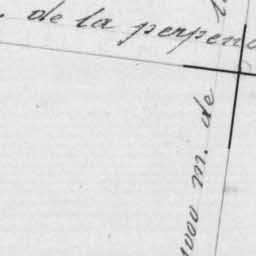 de la perpend
1000 m. de